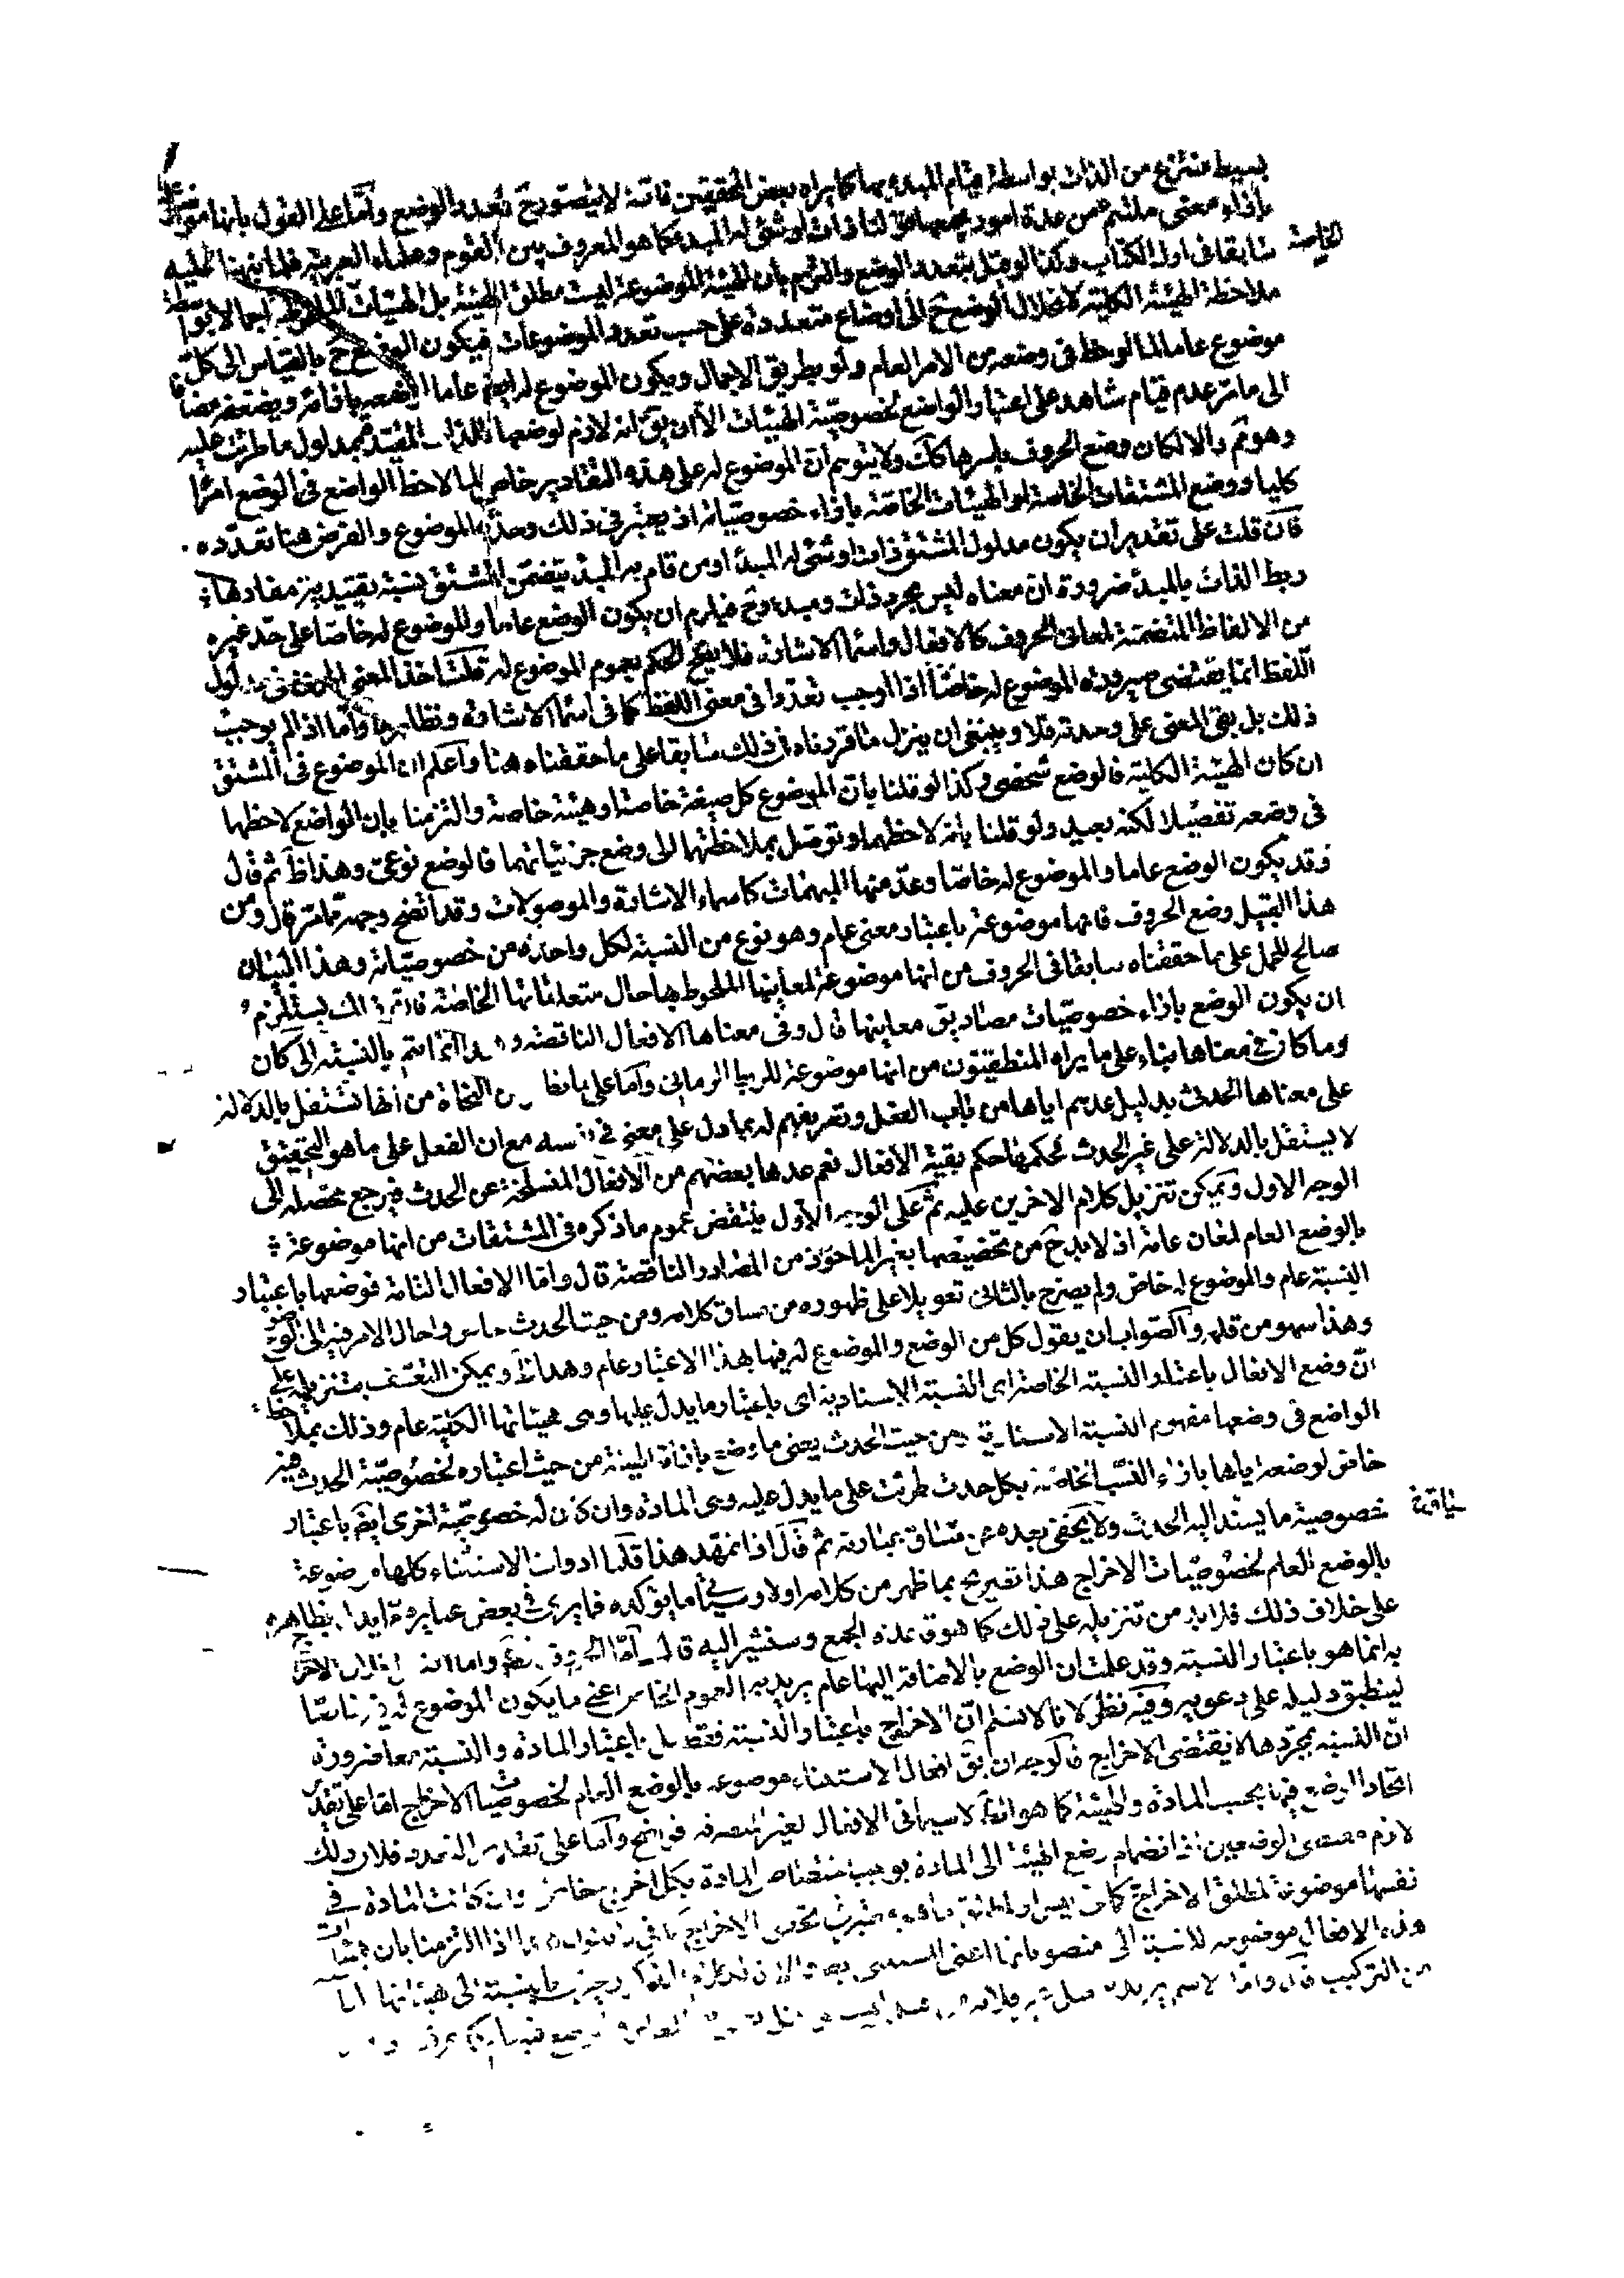 بسيط منتزع من الذات بواسطة قيام المبدء بها كما يراه بعض المحققين فانه لا يتصور ح تعدد الوضع واما على القول بانها موضوعة
بازاء معنى ملتئم من عدة امور لنا ذات او شئ له المبدء كما هو المعروف بين القوم وعلماء العربية فلما نبهنا عليه
الخاصة
سابقا فى اول الكتاب وكذا لو قيل بتعدد الوضع والتزم بان الهيئة الموضوعة ليست مطلق الهيئة بل الهيئات
ملاحظة الهيئة الكلية لانحلال الوضع ح الى اوضاع متعددة على حسب تعدد الموضوعات فيكون الوضع ح بالقياس الى كل
موضوع عاما لما لوحظ فى وضعه من الامر العام ولو بطريق الاجمال ويكون الموضوع له ايضا عاما لوضعه بازائه ويضعفه مضافا
الى ما مر عدم قيام شاهد على اعتبار الواضع لخصوصية الهيئات الا ان يق انه لازم لوضعها للذات المقيدة بمدلول ما طرئت عليه
وهو تم والا لكان وضع الحروف باسرها كك ولا يتوهم ان الموضوع له على هذه التقادير خاص لما لاحظ الواضع فى الوضع امرا
كليا ووضع المشتقات الخاصة او الهيئات الخاصة بازاء خصوصياته اذ يعتبر فى ذلك وحدة الموضوع والفرض هنا تعدده
فان قلت على تقدير ان يكون مدلول المشتق ذات او شئ له المبدء او من قام به المبدء يتضمن المشتق نسبة تقييدية مفادها
ربط الذات بالمبدء ضرورة ان معناه ليس مجرد ذات ومبدء وح فيلزم ان يكون الوضع عاما والموضوع له خاصا على حد غيره
من الالفاظ المتضمنة لمعانى الحروف كالافعال واسماء الاشارة فلا يصح الحكم بعموم الموضوع له قلت اخذ المعنى الحرفى فى مدلول
اللفظ انما يقتضى صيرورة الموضوع له خاصا اذا اوجب تعددا فى معنى اللفظ كما فى اسماء الاشارة ونظايرها واما اذا لم يوجب
ذلك بل بقى المعنى على وحدته فلا وينبغى ان ينزل ما قررناه فى ذلك سابقا على ما حققناه هنا واعلم ان الموضوع فى المشتق
ان كان الهيئة الكلية فالوضع شخصى وكذا لو قلنا بان الموضوع كل صيغة خاصة او هيئة خاصة والتزمنا بان الواضع لاحظها
فى وضعه تفصيلا لكنه بعيد ولو قلنا بانه لاحظهما وتوصل بملاحظتها الى وضع جزئياتهما فالوضع نوعى وهذا ظ ثم قال
وقد يكون الوضع عاما والموضوع له خاصا وعد منها المبهمات كاسماء الاشارة والموصولات وقد اتضح وجهه مما مر قال ومن
هذا القبيل وضع الحروف فانها موضوعة باعتبار معنى عام وهو نوع من النسبة لكل واحدة من خصوصياته وهذا البيان
صالح للحمل على ما حققناه سابقا فى الحروف من انها موضوعة لمعانيها الملحوظ بها حال متعلقاتها الخاصة فان ذلك يستلزم
ان يكون الوضع بازاء خصوصيات مصاديق معانيها قال وفى معناها الافعال الناقصة وهذا انما يتم بالنسبة الى كان
وما كان فى معناها بناء على ما يراه المنطقيون من انها موضوعة للربط الزمانى واما على النحاة من انها تستقل بالدلالة
على معناها الحدث بدليل عدهم اياها من باب الفعل وتعريفهم له بما دل على معنى فى نفسه مع ان الفعل على ما هو التحقيق
لا يستقل بالدلالة على غير الحدث فحكمها حكم بقية الافعال نعم عدها بعضهم من الافعال المنسلخة عن الحدث فيرجع محصله الى
الوجه الاول ويمكن تنزيل كلام الاخرين عليه ثم على الوجه الاول ينتقض عموم ما ذكره فى المشتقات من انها موضوعة
بالوضع العام لمعان عامة اذ لا بد ح من تخصيصها بغير الماخوذ من المصادر الناقصة قال واما الافعال التامة فوضعها باعتبار
النسبة عام والموضوع له خاص ولم يصرح بالثانى تعويلا على ظهوره من مساق كلامه ومن حيث الحدث خاص واحال الامر فيه الى الوضوح
وهذا سهو من قلمه والصواب ان يقول كل من الوضع والموضوع له فيها بهذا الاعتبار عام وهذا ظ ويمكن التعسف بتنزيله على
ان وضع الافعال باعتبار النسبة الخاصة اى النسبة الاسنادية اى باعتبار ما يدل عليها وهى هيئاتها الكلية عام وذلك بملاحظة
الواضع فى وضعها مفهوم النسبة الاسنادية ومن حيث الحدث يعنى ما وضع بازائه الهيئة من حيث اعتباره لخصوصية الحدث فيه
خاص لوضعه اياها بازاء النسب الخاصة بكل حدث طرئت على ما يدل عليه وهى المادة وان كان له خصوصية اخرى ايضا باعتبار
خصوصية ما يسند اليه الحدث ولا يخفى بعده عن مساق عبارته ثم قال اذا تمهد هذا قلنا ادوات الاستثناء كلها موضوعة
بالوضع العام لخصوصيات الاخراج هذا تصريح بما ظهر من كلامه اولا وسيأتى ما يؤكده فما يرى فى بعض عبايره مما يدل بظاهره
على خلاف ذلك فلا بد من تنزيله على ذلك كما هو قاعدة الجمع وسنشير اليه قال اما الحروف فظ واما الافعال فلان الاخراج
به انما هو باعتبار النسبة وقد علمت ان الوضع بالاضافة اليها عام يريد به العموم الخاص اعنى ما يكون الموضوع له فيه خاصا
لينطبق دليله على دعويه وفيه نظر لانا لا نسلم ان الاخراج باعتبار النسبة فقط بل باعتبار المادة والنسبة معا ضرورة
ان النسبة بمجردها لا يقتضى الاخراج فالوجه ان يق افعال الاستثناء موضوعة بالوضع العام لخصوصيات الاخراج اما على تقدير
اتحاد الوضع فيها بحسب المادة والهيئة كما هو الظ لاسيما فى الافعال الغير المتصرفة فواضح واما على تقدير التعدد فلان ذلك
لازم الوضعين اذ انضمام وضع الهيئة الى المادة يوجب اختصاص المادة بكل اخراج خاص وان كانت المادة فى
نفسها موضوعة لمطلق الاخراج كما فى ليس
هذه الافعال موضوعة للنسبة الى منصوباتها اعنى المستثنى
من التركيب قال واما الاسم